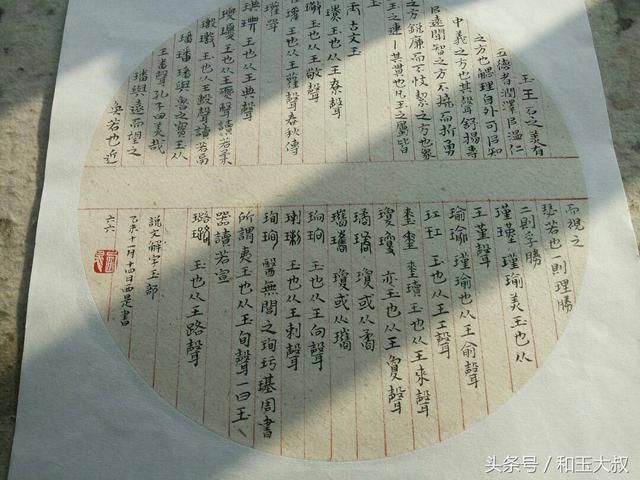 玉王石之美有
五德者潤澤㠯溫仁
之方也䚡理自外可㠯知
中義之方也其聲舒揚專
㠯遠聞智之方不撓而折勇
之方銳廉而不忮絜之方也象
王之連丨其貫也凡王之屬皆
古文王
璙 王也从王尞聲
王也从王敬聲
瓘 王也从王雚聲春秋傳
瓘斝
琠琠 王也从王典聲
王也从王夒聲讀若柔
王也从王毄聲讀若鬲
璠 璠璵魯之寶王从
王番聲孔子曰美哉
璠與遠而望之
奐若也近
而視之
瑟若也一則理勝
二則孚勝
瑾瑾 瑾瑜美玉也从
王堇聲
瑜瑜 瑾瑜也从王俞聲
玒玒 玉也从王工聲
瓄玉也从王來聲
瓊瓊 亦玉也从王夐聲
璚璚 瓊或从矞
瓗瓗 瓊或从瓗
珦珦 玉也从王向聲
玉也从王剌聲
珣珣 醫無閭之珣玗璂周書
所謂夷玉也从玉旬聲一曰玉
器讀若宣
璐璐 玉也从王路聲
說文解字玉部
乙未十一月十四日西是書
六六
头条号 / 和玉大叔